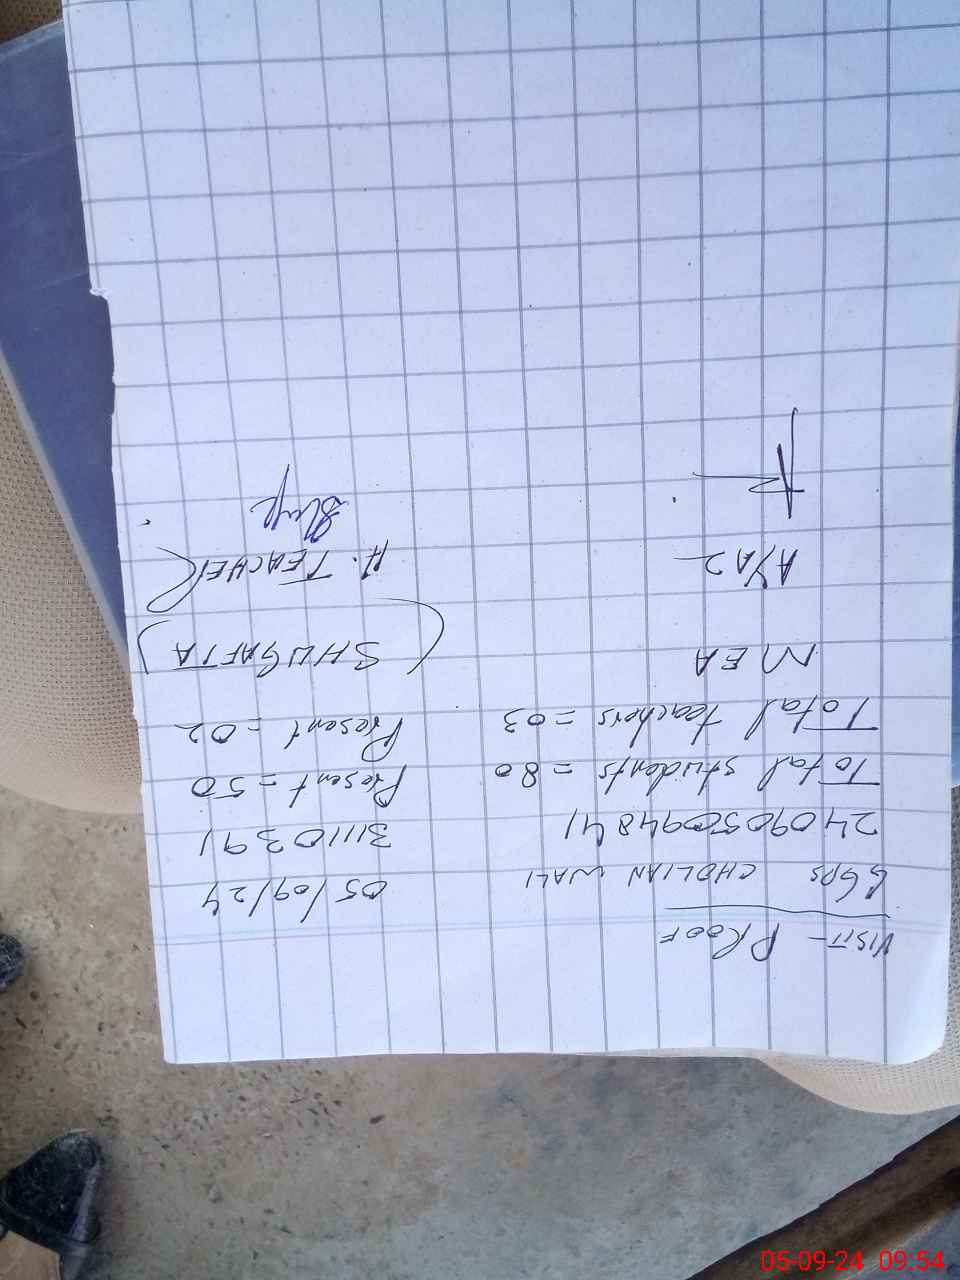 VISIT - PROOF
GGPS CHOLIAN WALI 05/09/24
2409050994841 31110391
Total students = 80 Present = 50
Total teachers = 03 Present = 02
MEA (SHUGAFTA)
AYAZ H. TEACHER
05-09-24 09:54